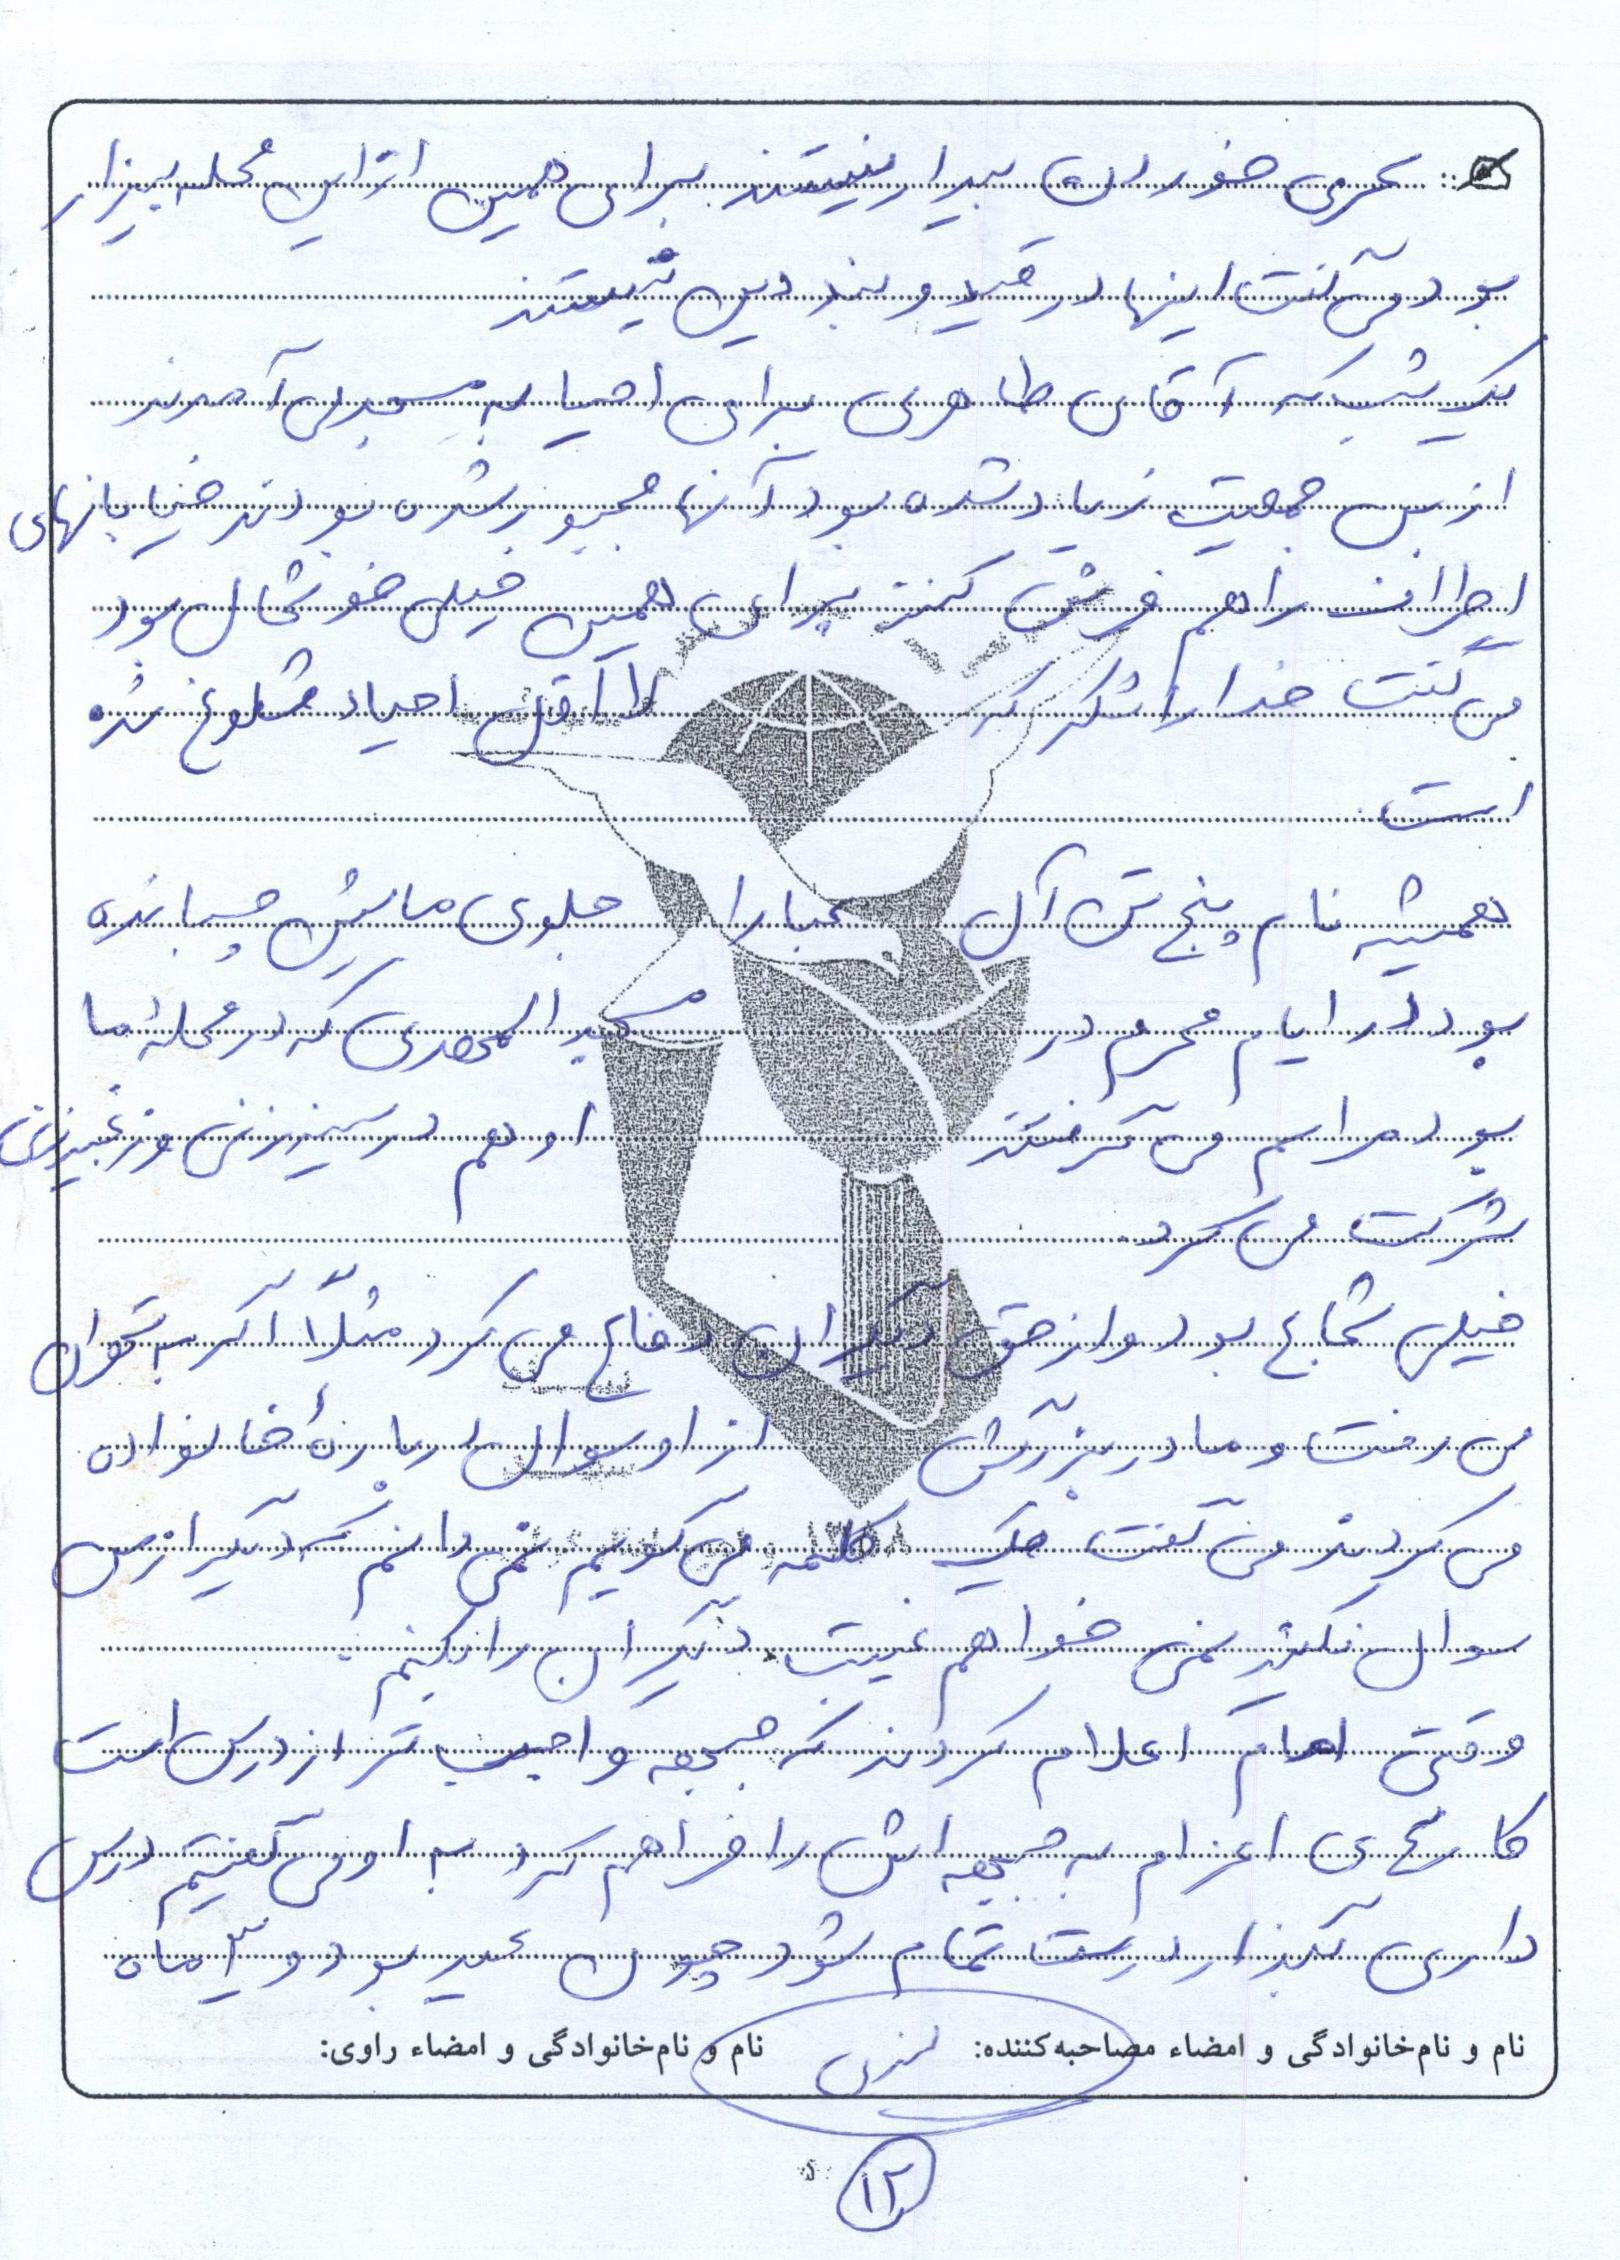 سحری خوردن بیدار نیستند برای همین از این محله بیزار
بود می گفت اینها در قید و بند دین نیستند
یک شب که آقای طاهری برای احیا به مسجد می آمدند
از بس جمعیت زیاد شده بود آنها مجبور شده بودند خیابانهای
اطراف را هم فرش کنند برای همین خیلی خوشحال بود
می گفت خدا را شکر که لااقل احیاء شلوغ شده
است.
همیشه نام پنج تن آل عبا را جلوی ماشینش چسبانده
بود در ایام محرم در مسجد المهدی که در محلهٔ ما
بود مراسم می گرفتند او هم در سینه زنی و زنجیرزنی
شرکت می کرد.
خیلی شجاع بود و از حق دیگران دفاع می کرد مثلاً اگر به تهران
می رفت و مادربزرگش از او سوال دربارهٔ خانواده
می کردند می گفت یک کلمه می گویم نمی دانم که دیگر از من
سوال نکنید نمی خواهم غیبت دیگران را بکنم.
وقتی امام اعلام کردند که جبهه واجب تر از درس است
کارهای اعزام به جبهه اش را فراهم کرد به او می گفتیم درس
داری بگذار درست تمام شود چون عید بود و ۳ ماه
نام و نام‌خانوادگی و امضاء مصاحبه‌کننده:
نام و نام‌خانوادگی و امضاء راوی:
۱۲